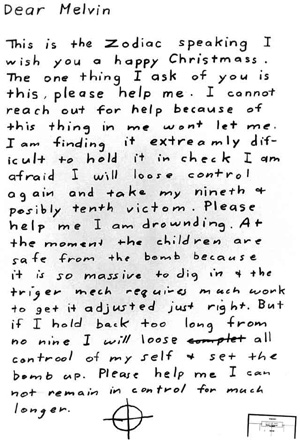 Dear Melvin
This is the Zodiac speaking I
wish you a happy Christmass.
The one thing I ask of you is
this, please help me. I cannot
reach out for help because of
this thing in me wont let me.
I am finding it extreamly dif-
icult to hold it in check I am
afraid I will loose control
again and take my nineth +
posibly tenth victom. Please
help me I am drownding. At
the moment the children are
safe from the bomb because
it is so massive to dig in + the
triger mech requires much work
to get it adjusted just right. But
if I hold back too long from
no nine I will loose complet all
controol of my self + set the
bomb up. Please help me I can
not remain in control for much
longer.